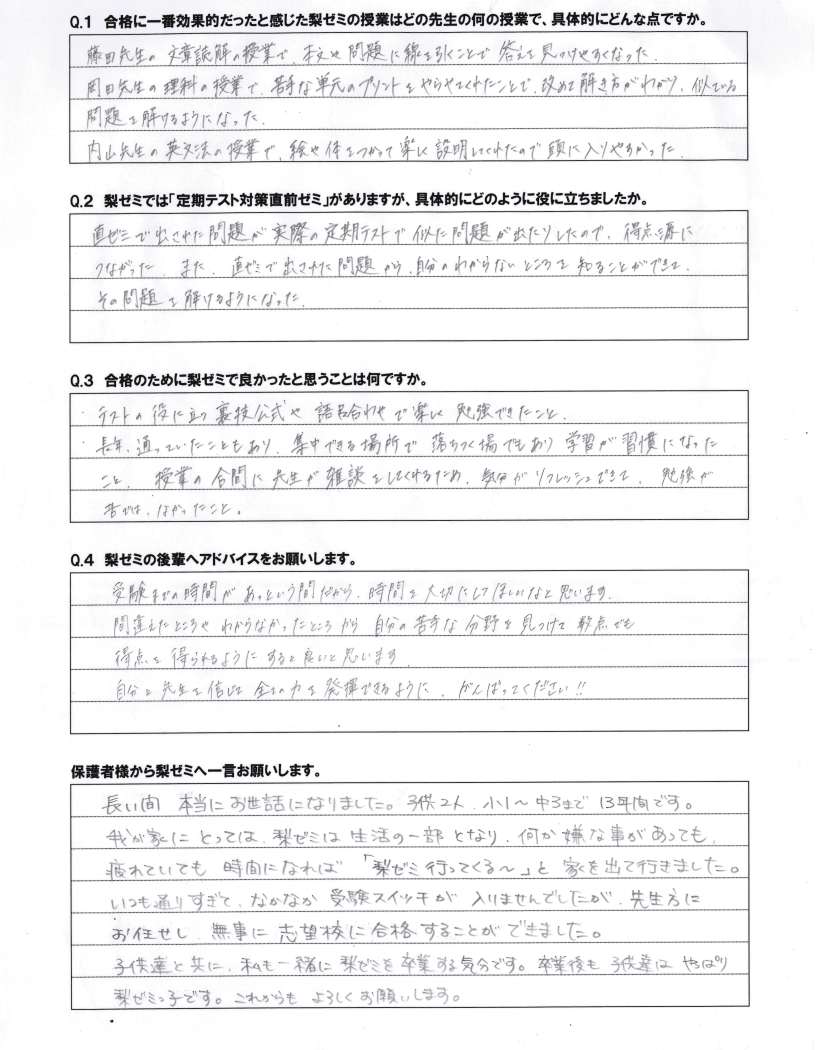 Q.1 合格に一番効果的だったと感じた梨ゼミの授業はどの先生の何の授業で、具体的にどんな点ですか。
藤田先生の文章読解の授業で、本文や問題に線を引くことで答えを見つけやすくなった。
岡田先生の理科の授業で、苦手な単元のプリントをやらせてくれたことで、改めて解き方がわかり、似ている
問題を解けるようになった。
内山先生の英文法の授業で、絵や体をつかって楽しく説明してくれたので頭に入りやすかった。
Q.2 梨ゼミでは「定期テスト対策直前ゼミ」がありますが、具体的にどのように役に立ちましたか。
直ゼミで出された問題が実際の定期テストで似た問題が出たりしたので、得点源に
つながった。また、直ゼミで出された問題から、自分のわからないところを知ることができて、
その問題を解けるようになった。
Q.3 合格のために梨ゼミで良かったと思うことは何ですか。
・テストの役に立つ裏技公式や語呂合わせで楽しく勉強できたこと。
・長年、通っていたこともあり、集中できる場所で落ちつく場でもあり学習が習慣になった
こと。授業の合間に先生が雑談をしてくれるため、気分がリフレッシュできて、勉強が
苦では、なかったこと。
Q.4 梨ゼミの後輩へアドバイスをお願いします。
受験までの時間があっという間だから、時間を大切にしてほしいなと思います。
間違えたところやわからなかったところから自分の苦手な分野を見つけて軟点でも
得点を得られるようにすると良いと思います。
自分と先生を信じて全ての力を発揮できるように、がんばってください!!
保護者様から梨ゼミへ一言お願いします。
長い間 本当にお世話になりました。子供2人、小1～中3まで13年間です。
我が家にとっては、梨ゼミは生活の一部となり、何か嫌な事があっても、
疲れていても時間になれば「梨ゼミ行ってくる～」と家を出て行きました。
いつも通りすぎて、なかなか受験スイッチが入りませんでしたが、先生方に
お任せし、無事に志望校に合格することができました。
子供達と共に、私も一緒に梨ゼミを卒業する気分です。卒業後も子供達はやっぱり
梨ゼミっ子です。これからもよろしくお願いします。